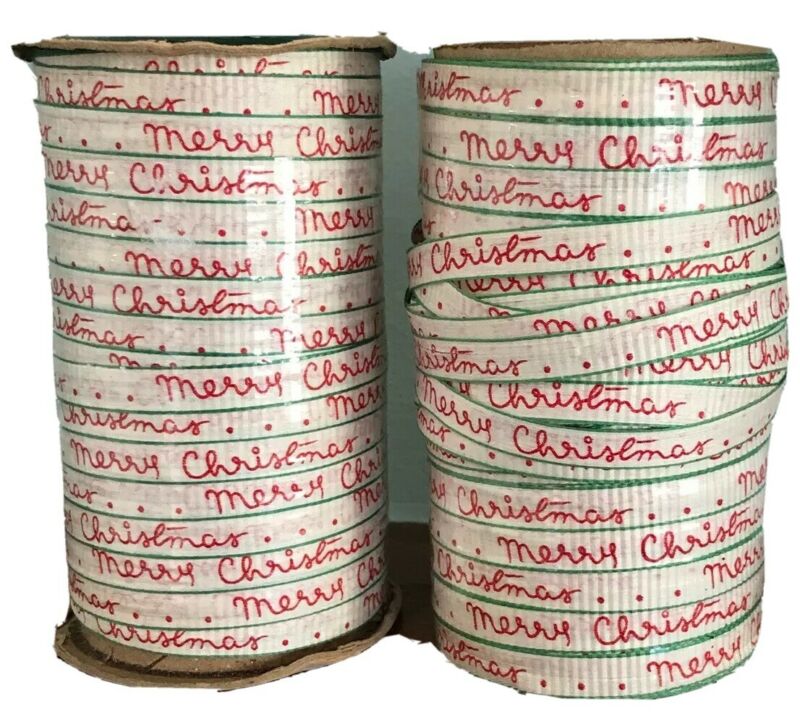 Christmas . . . Merry
. . . Merry Christmas
Merry Christmas . . .
Christmas . . . Merry
. . . Merry Christmas
Merry Christmas . . .
Christmas . . . Merry
. . . Merry Christmas
Christmas . . . Merry
. Merry Christmas
. . . Merry Christmas
Christmas . . .
Merry Christmas
. . . Merry
Christmas . . .
Christmas . . . Merry
. . . Merry Christmas
Christmas . . .
Merry
Merry Christmas . . .
Merry
Christmas . . . Merry
Merry
Christmas . . .
Merry Christmas . . .
Christmas . . . Merry
. . . Merry Christmas
Christmas . . . Merry
. . Merry Christmas
Christmas . . . Merry